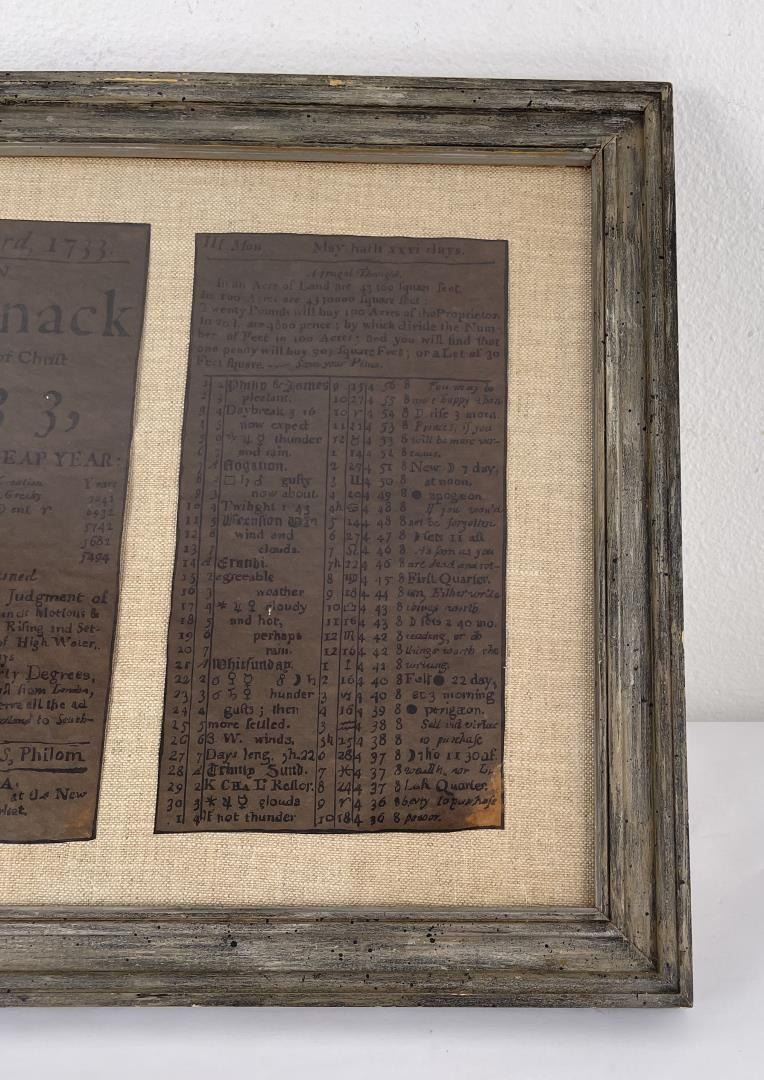 ard, 1733.
N
nack
of Christ
3 3,
LEAP YEAR:
Creation Years
Greeks 7241
6932
5742
5682
5494
Judgment of
Motions &
Rising and Set-
of High Water,
ys
rty Degrees,
from London,
serve all the ad
to South-
S, Philom
A,
at the New
rket.
III Mon May hath xxxi days.
A frugal Thought.
In an Acre of Land are 43 160 square feet,
In 100 Acres are 435 0000 square feet;
Twenty Pounds will buy 100 Acres of the Proprietor.
In 20 l. are 4800 pence; by which divide the Num-
ber of Feet in 100 Acres; and you will find that
one penny will buy 907 square Feet; or a Lot of 30
Feet square. Save your Pence.
1 2 Philip & James 9 15 4 56 8 You may be
2 3 pleasant. 10 27 4 55 8 more happy than
3 4 Daybreak 3 16 10 ♈ 4 54 8 ☽ rise 3 morn.
4 5 now expect 11 21 4 53 8 Princes, if you
5 6 ♃ ☿ thunder 12 ♉ 4 53 8 will be more vir-
6 7 and rain. 1 14 4 52 8 tuous.
7 Rogation. 2 27 4 51 8 New ☽ 7 day,
8 2 □ ♄ ♂ gusty 3 ♊ 4 50 8 at noon.
9 3 now about. 4 20 4 49 8 ● apogæon
10 4 Twilight 1 43 4h ♋ 4 48 8 If you wou'd
11 5 Ascension Day 5 14 4 48 8 not be forgotten
12 6 wind and 6 27 4 47 8 ☽ sets 11 aft
13 7 clouds. 7 ♌ 4 46 8 As soon as you
14 Exaudi. 7h 22 4 46 8 are dead and rot-
15 2 agreeable 8 ♍ 4 45 8 First Quarter.
16 3 weather 9 18 4 44 8 ten, Either write
17 4 ✶ ♃ ☿ cloudy 10 ♎ 4 43 8 things worth
18 5 and hot, 11 16 4 43 8 ☽ sets 2 40 mo.
19 6 perhaps 12 ♏ 4 42 8 reading, or do
20 7 rain. 12 16 4 42 8 things worth the
21 Whitsunday. 1 ♐ 4 41 8 writing.
22 2 ☌ ☿ 8 ☽ ♄ 2 16 4 40 8 Full ● 22 day,
23 3 ☌ ♄ ☿ thunder 3 ♑ 4 40 8 at 3 morning
24 4 gusts; then 4 16 4 39 8 ● perigæon.
25 5 more settled. 5 ♒ 4 38 8 Sell not virtue
26 6 S. W. winds, 5h 15 4 38 8 to purchase
27 7 Days leng. 5h. 22 6 28 4 37 8 ☽ rise 11 30 af
28 Trinity Sund. 7 ♓ 4 37 8 wealth, nor Li-
29 2 K CHA II Restor. 8 24 4 37 8 Last Quarter.
30 3 ✶ ♃ ☿ clouds 9 ♈ 4 36 8 berty to purchase
31 4 If not thunder 10 18 4 36 8 power.